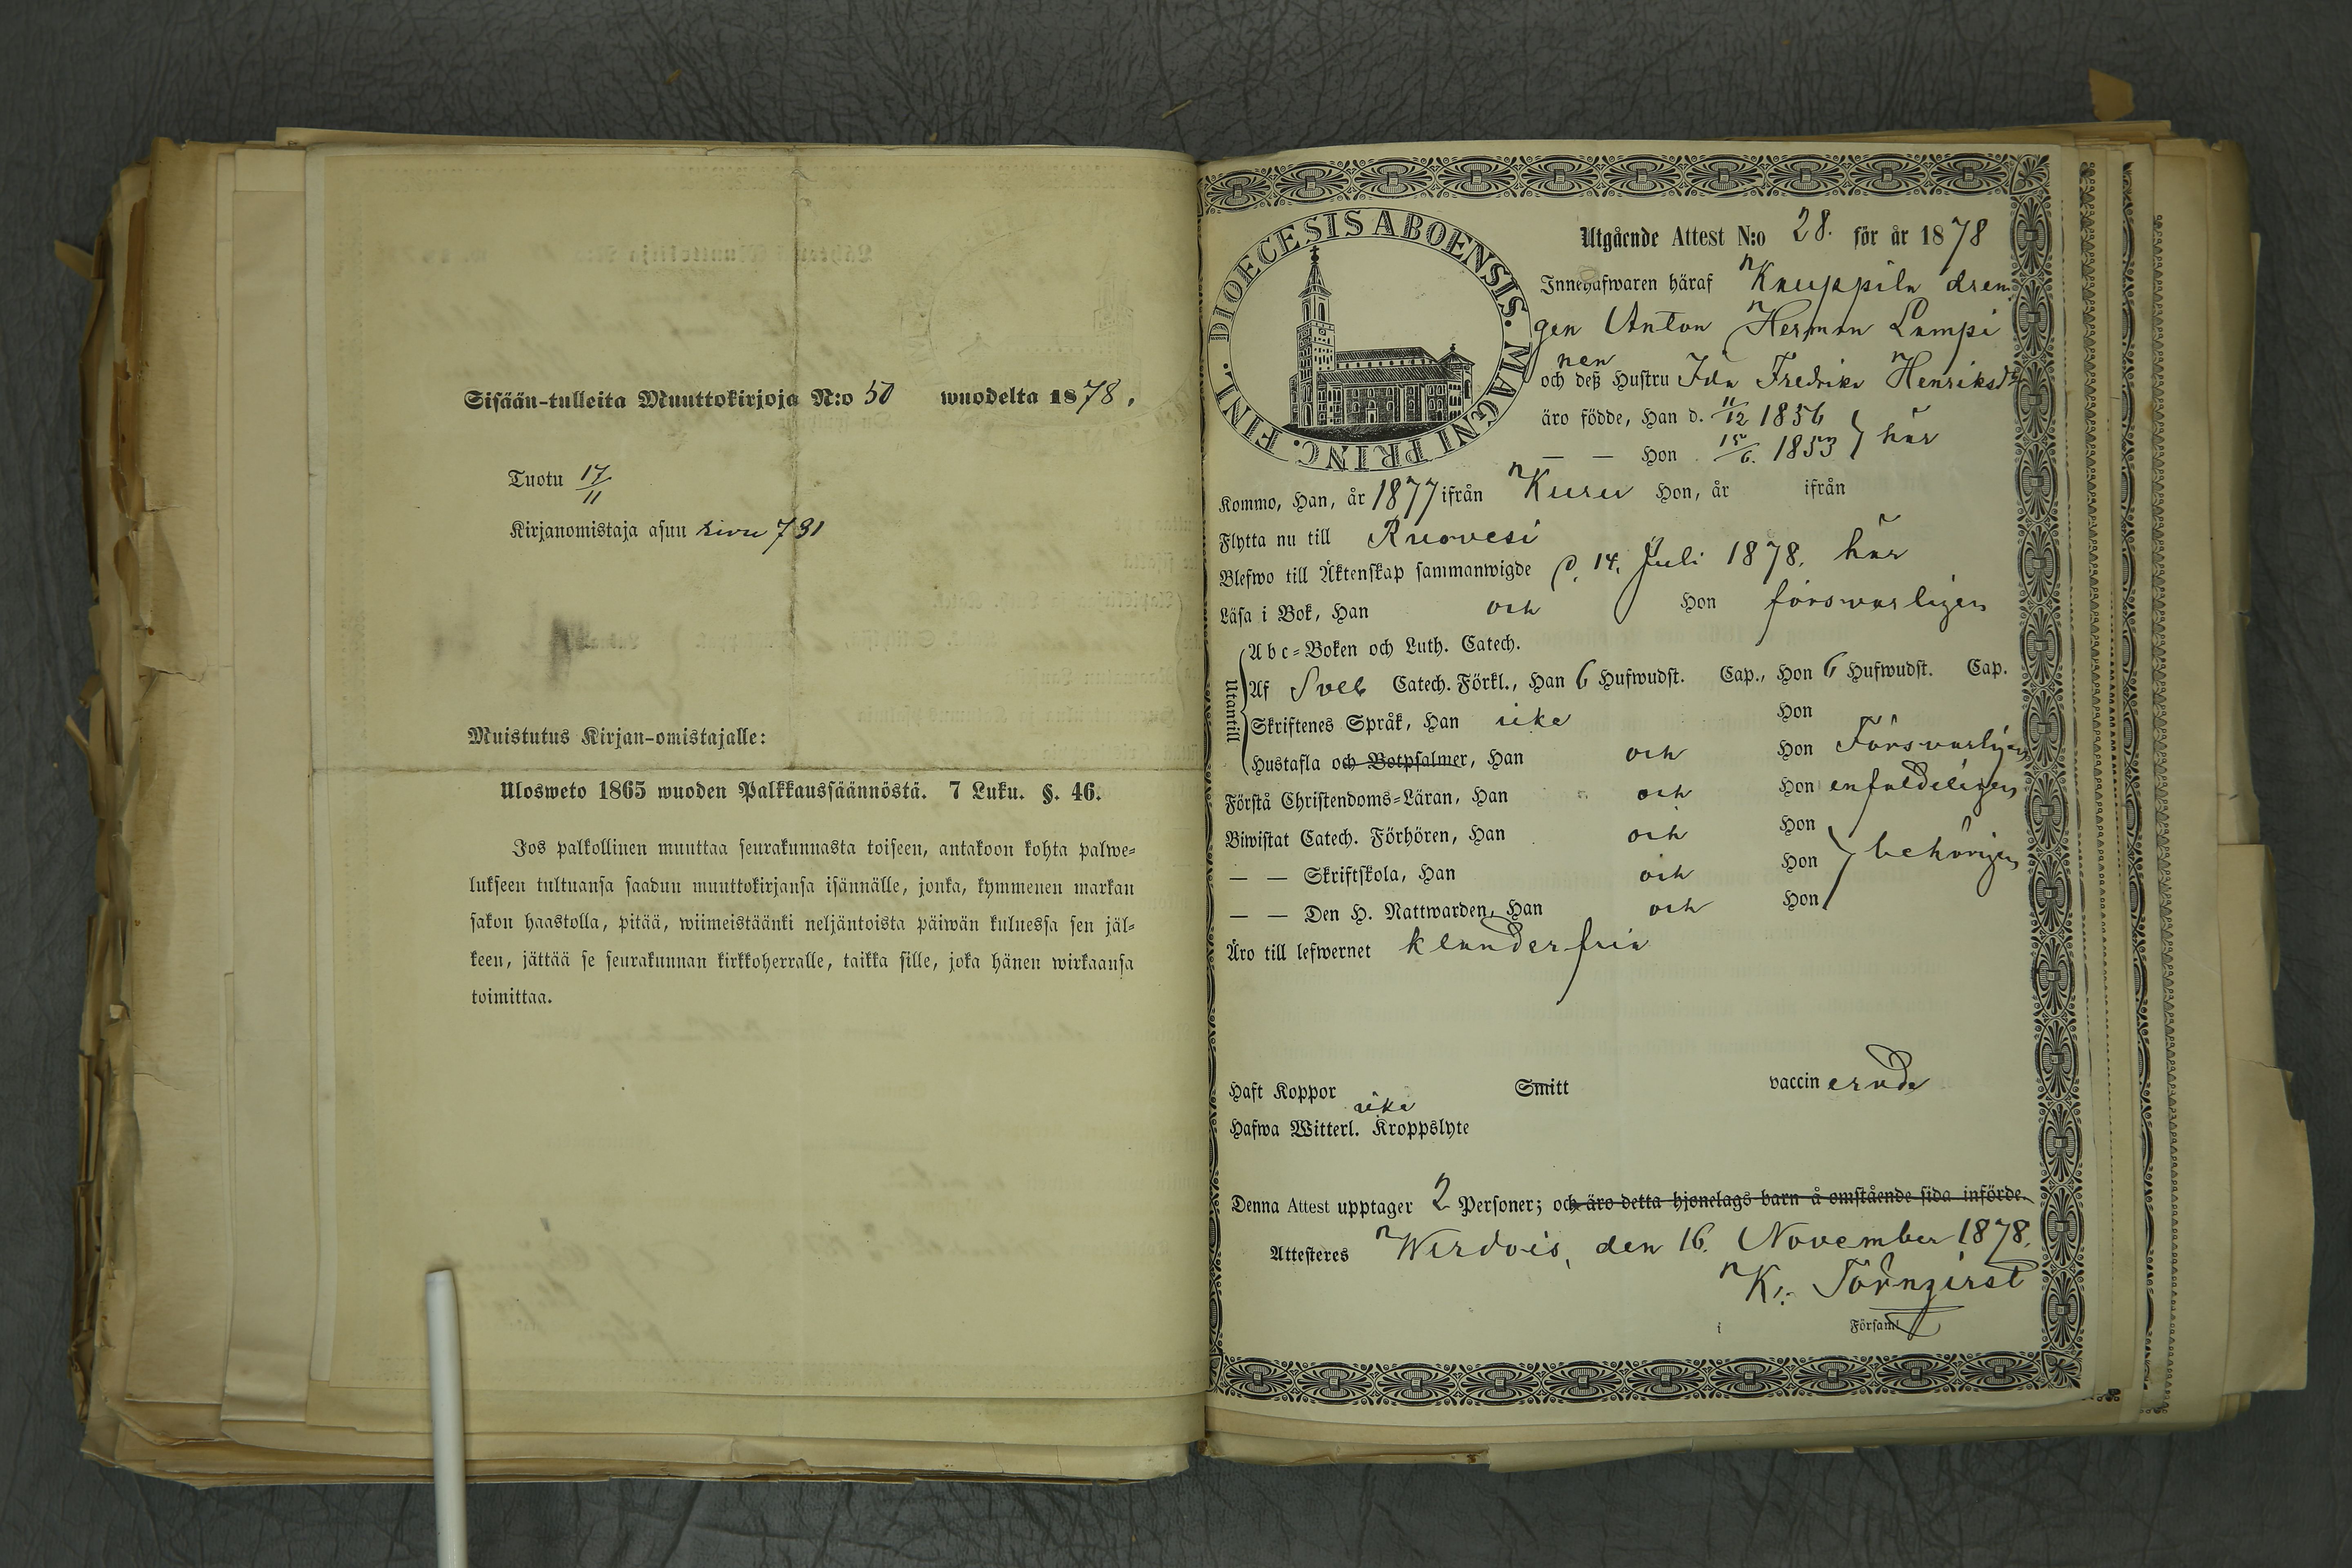 Sisään-tulleita Muuttokirjoja N:o 50 wuodelta 1878.
Tuotu 17/11
Kirjanomistaja asuu sivu 731
Muistutus Kirjan-omistajalle:
Ulosweto 1865 wuoden Palkkaussäännöstä. 7 Luku. §. 46.
Jos palkollinen muuttaa seurakunnasta toiseen, antakoon kohta palwe-
lukseen tultuansa saadun muuttokirjansa isännälle, jonka, kymmenen markan
sakon haastolla, pitää, wiimeistäänki neljäntoista päiwän kuluessa sen jäl-
keen, jättää se seurakunnan kirkkoherralle, taikka sille, joka hänen wirkaansa
toimittaa.
DIOECESIS ABOENSIS. MAGNI PRINC. FINL.
Utgående Attest N:o 28. för år 1878
Innehafwaren häraf Knuppila dren
gen Anton Herman Lampi
nen
och deß Hustru Ida Fredrika Henriksdr
äro födde, Han d. 11/12 1856
— — Hon 15/6. 1853 } här
Kommo, Han, år 1877 ifrån Kuru Hon, år ifrån
Flytta nu till Ruovesi
Blefwo till Äktenskap sammanwigde d. 14. Juli 1878. här
Läsa i Bok, Han och Hon försvarligen
Utantill
Abc-Boken och Luth. Catech.
Af Sveb Catech. Förkl., Han 6 Hufwudst. Cap., Hon 6 Hufwudst. Cap.
Skriftenes Språk, Han icke Hon
Hustafla och Botpsalmer, Han och Hon Försvarligen
Förstå Christendoms-Läran, Han och Hon enfaldeligen
Biwistat Catech. Förhören, Han och Hon
— — Skriftskola, Han och Hon } behörigen
— — Den H. Nattwarden, Han och Hon
Äro till lefwernet klanderfria
Haft Koppor Smitt vaccinerade
icke
Hafwa Witterl. Kroppslyte
Denna Attest upptager 2 Personer; och äro detta hjonelags barn å omstående sida införde.
Attesteres Wirdois, den 16. November 1878.
K: Törnqvist
i Församl